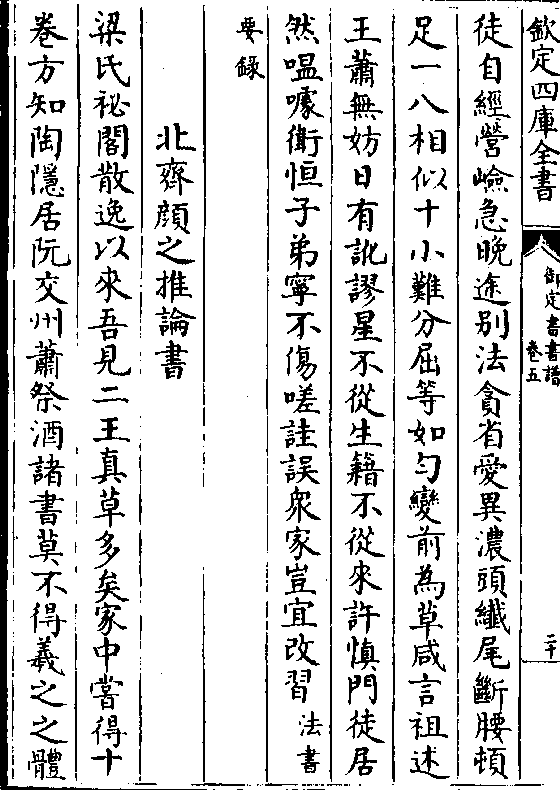 欽定四庫全書
御定書畫譜
卷五
二十
徒自經營嶮急晚途别法貪省愛異濃頭纖尾斷腰頓
足一八相似十小難分屈等如勻變前為草咸言祖述
王蕭無妨日有訛謬星不從生籍不從來許慎門徒居
然嗢噱衛恒子弟寧不傷嗟詿誤衆家豈宜改習法書
要錄
北齊顔之推論書
梁氏祕閣散逸以來吾見二王真草多矣家中嘗得十
卷方知陶隱居阮交州蕭祭酒諸書莫不得羲之之體